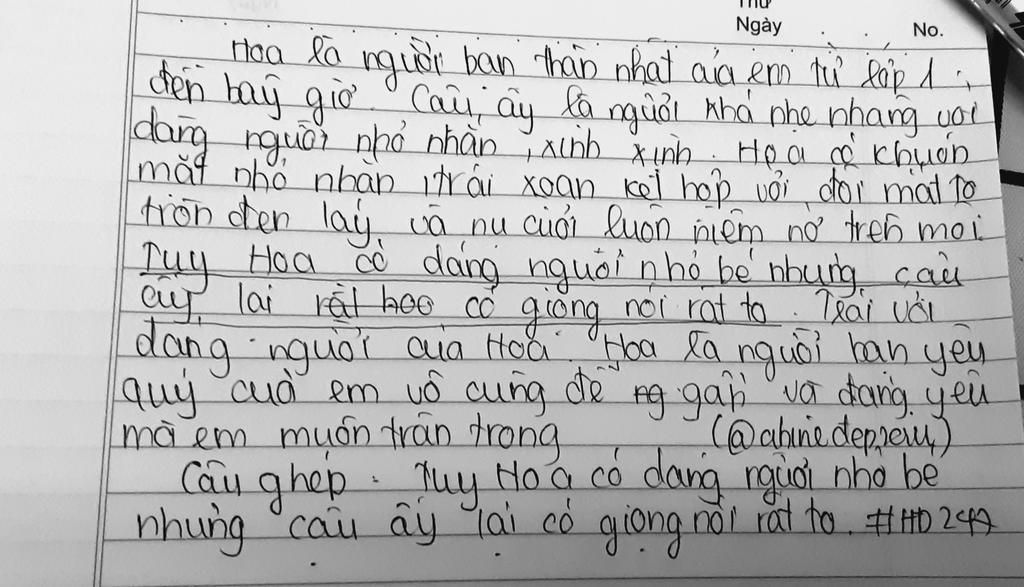 Thứ
Ngày No.
Hoa là người bạn thân nhất của em từ lớp 1
đến bây giờ. Cậu ấy là người khá nhẹ nhàng với
dáng người nhỏ nhắn, xinh xinh. Hoa có khuôn
mặt nhỏ nhắn, trái xoan kết hợp với đôi mắt to
tròn đen láy và nụ cười luôn niềm nở trên môi.
Tuy Hoa có dáng người nhỏ bé nhưng cậu
ấy lại rất có giọng nói rất to. Trái với
dáng người của Hoa. Hoa là người bạn yêu
quý của em vô cùng dễ ng gần và đáng yêu
mà em muốn trân trọng
Câu ghép: Tuy Hoa có dáng người nhỏ bé
nhưng cậu ấy lại có giọng nói rất to. #HD247